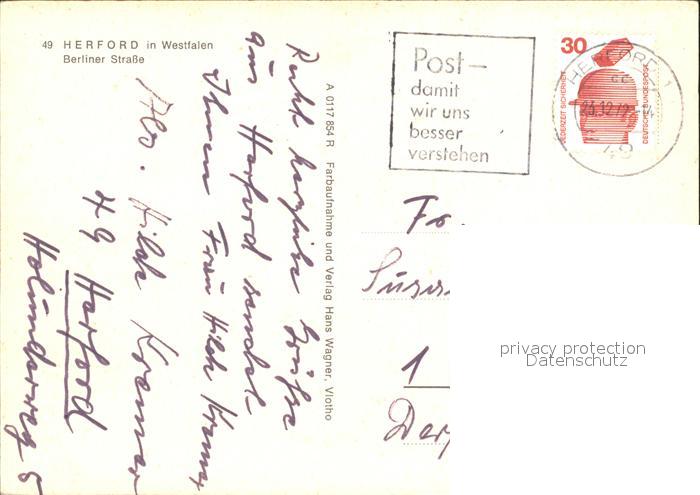 49 HERFORD in Westfalen
Berliner Straße
Recht herzliche Grüße
aus Herford sendet
Ihnen Frau Hilde Kramer
Abs. Hilde Kramer
49 Herford
Holunderweg 5
A 0117 854 R Farbaufnahme und Verlag Hans Wagner, Vlotho
Post-
damit
wir uns
besser
verstehen
30
JEDERZEIT SICHERHEIT
DEUTSCHE BUNDESPOST
HERFORD 1
cc
49
Fr
1
privacy protection
Datenschutz